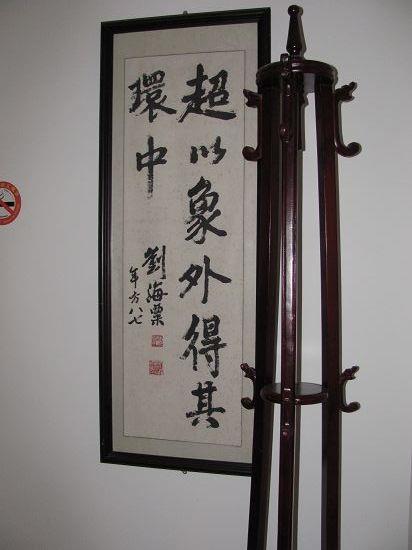 超以象外得其
環中
劉海粟
年方八七